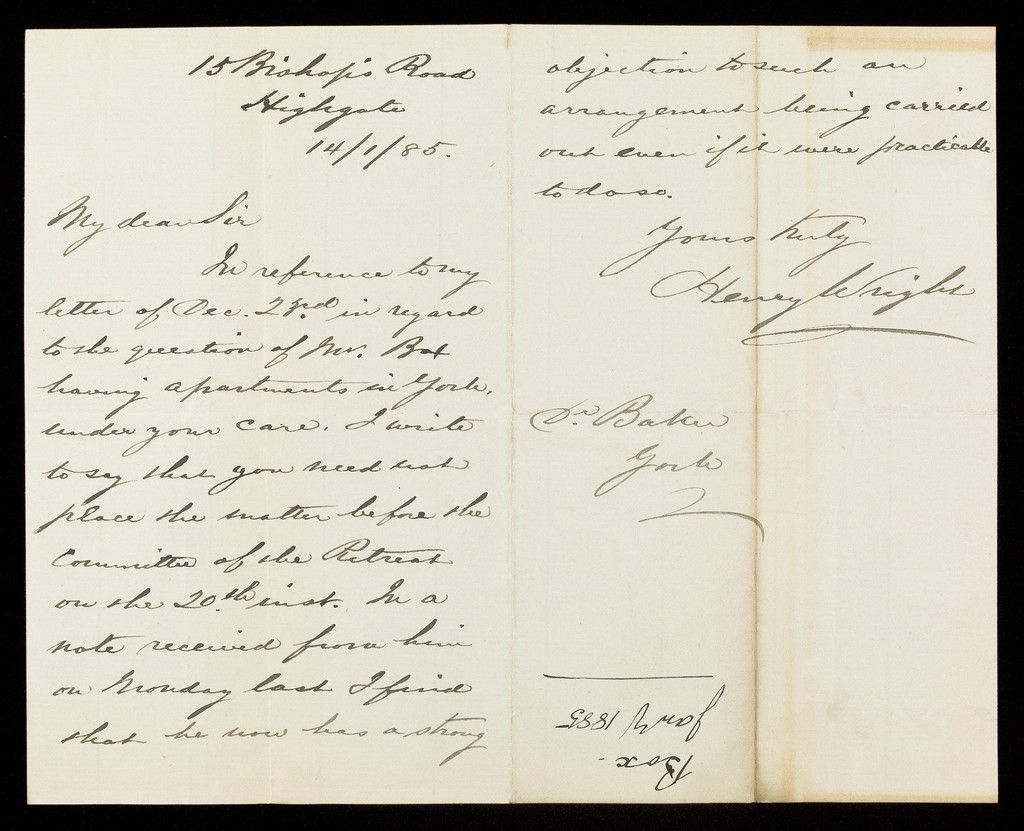 15 Bishop's Road
Highgate
14/1/85.
My dear Sir
In reference to my
letter of Dec. 23rd in regard
to the question of Mr. Box
having apartments in York,
under your care. I write
to say that you need not
place the matter before the
Committee of the Retreat
on the 20th inst. In a
note received from him
on Monday last I find
that he now has a strong
objection to such an
arrangement being carried
out even if it were practicable
to do so.
Yours truly
Henry Wright
Dr Baker
York
Box -
Jary 1885